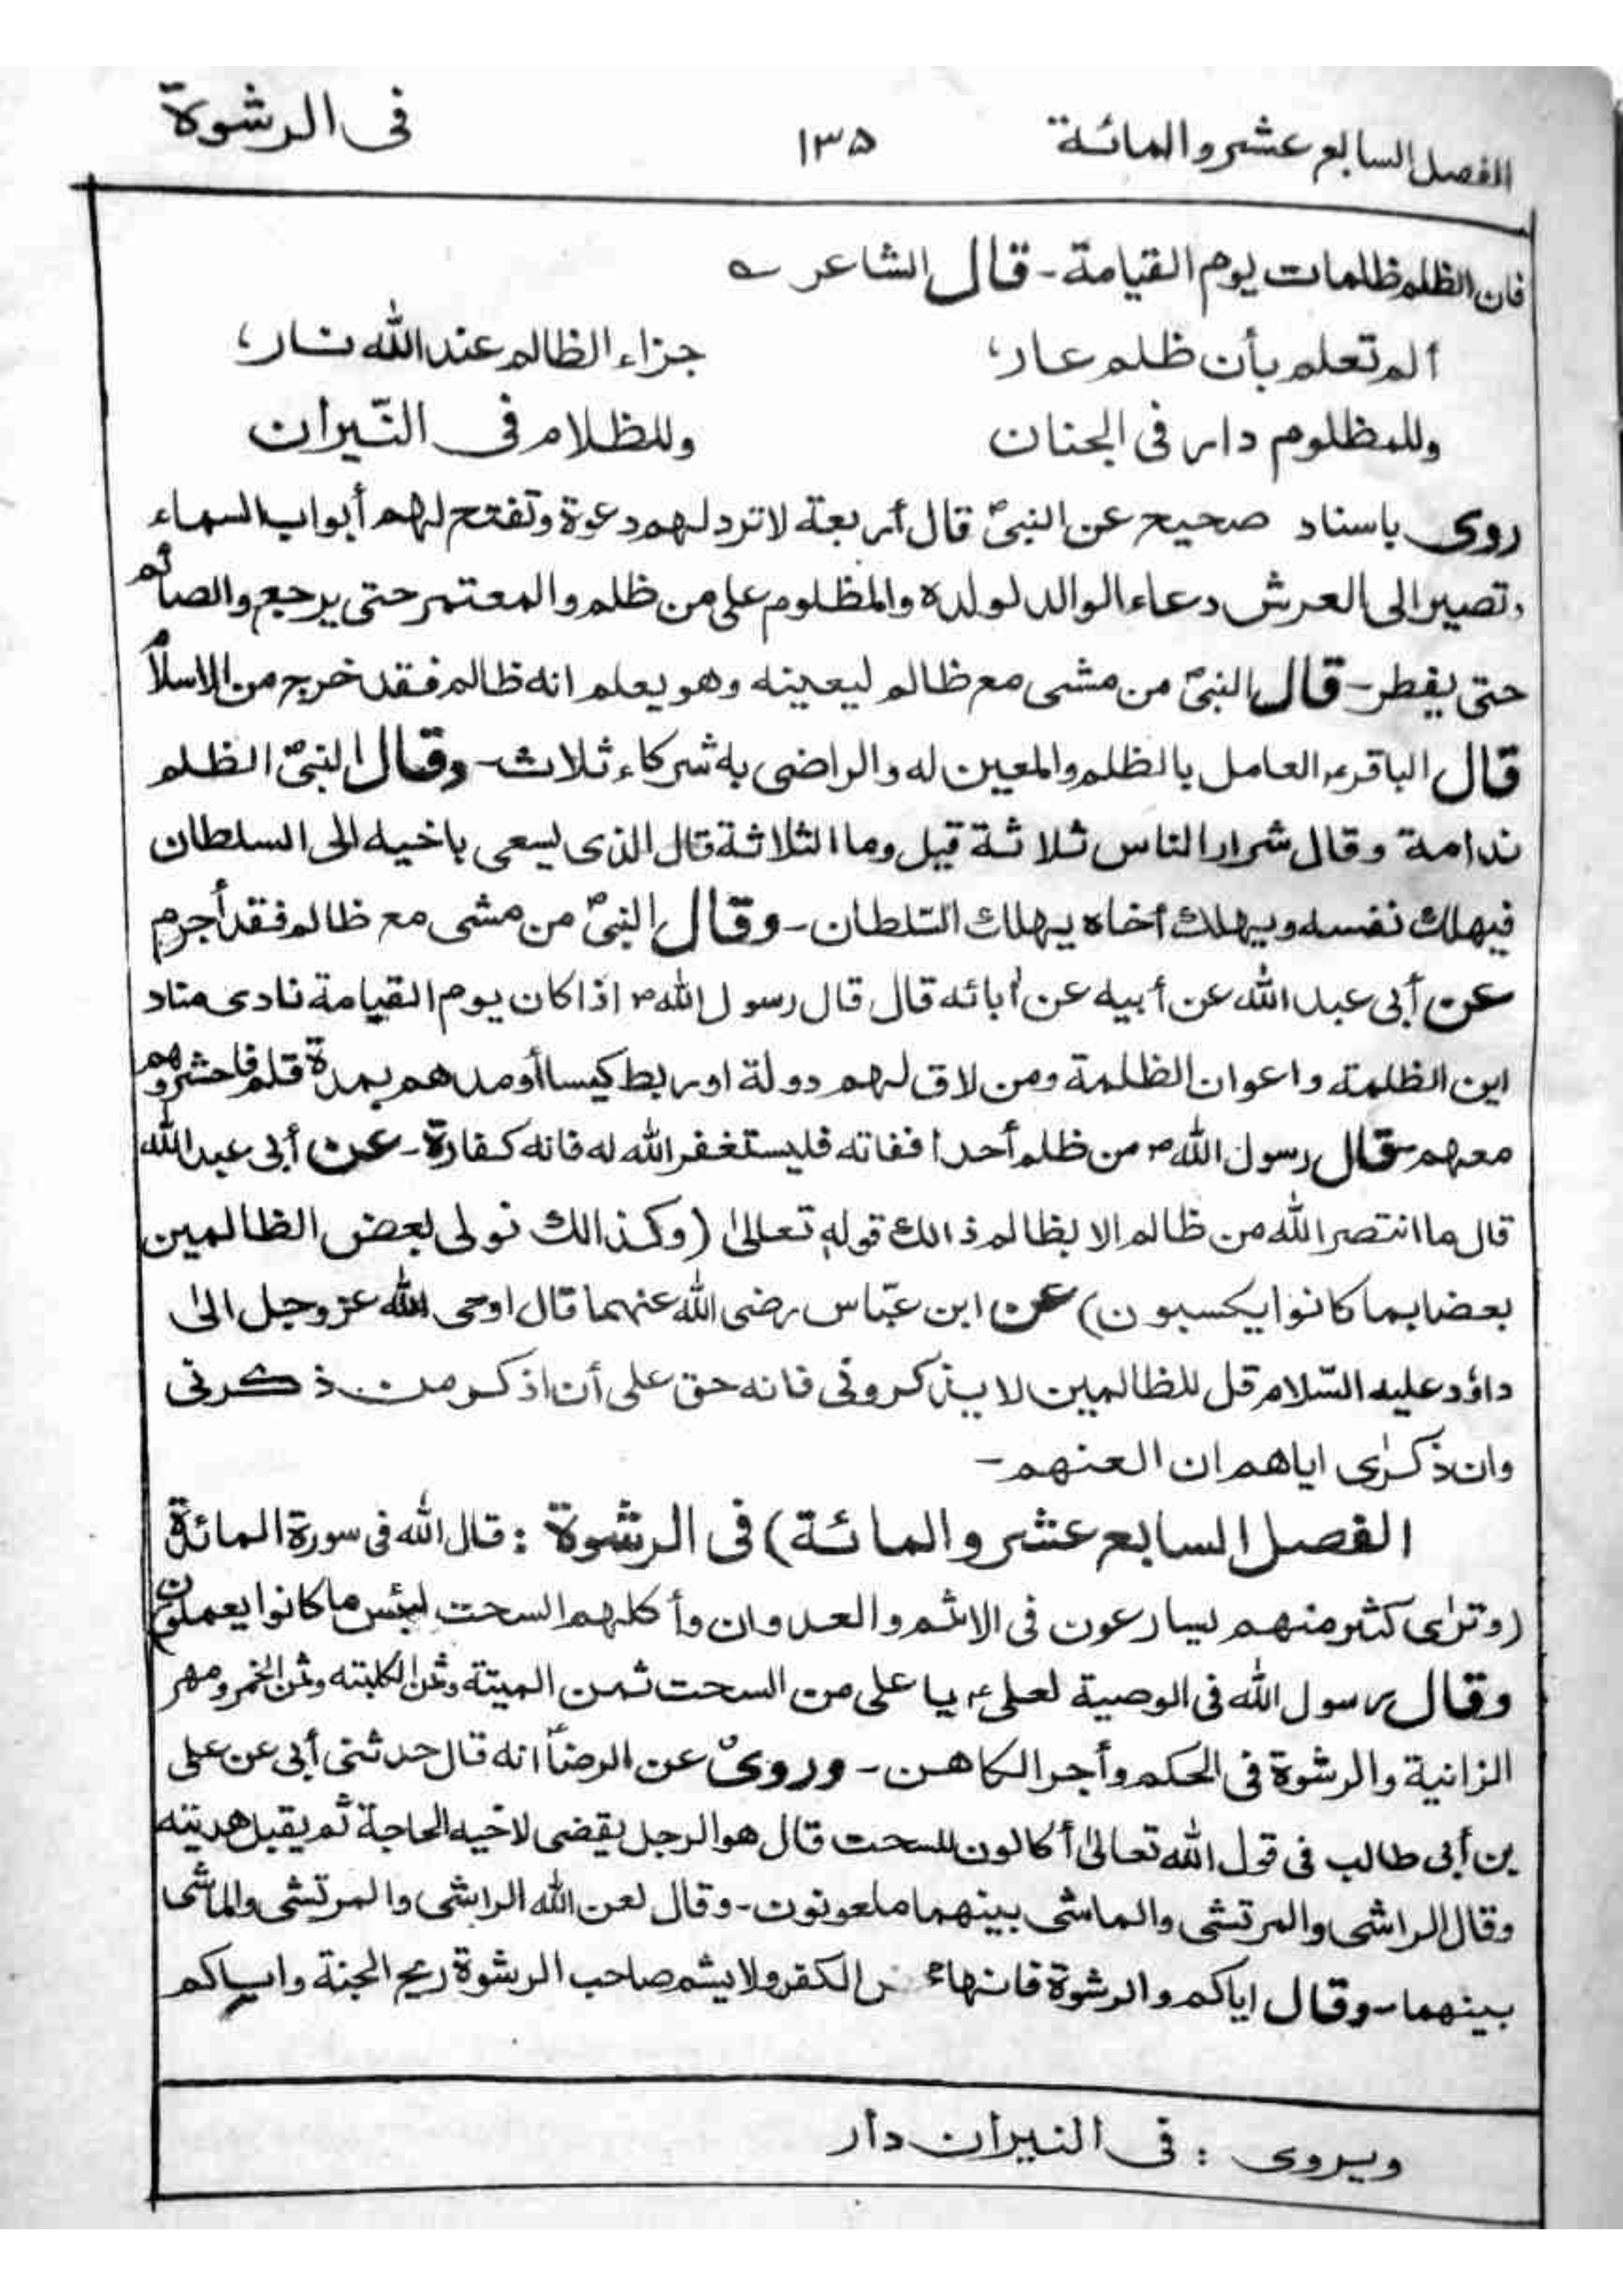 الفصل السابع عشر والمائة ١٣۵ فى الرشوة
فان الظلم ظلمات يوم القيامة - قال الشاعر ؎
ألم تعلم بأن ظلم عار، جزاء الظالم عند الله نار،
وللمظلوم دار فى الجنان وللظلام فى النّيران
روى باسناد صحيح عن النبىؐ قال أربعة لا ترد لهم دعوة وتفتح لهم أبواب السماء
وتصير الى العرش دعاء الوالد لولده والمظلوم على من ظلم والمعتمر حتى يرجع والصائم
حتى يفطر - قال النبىؐ من مشى مع ظالم ليعينه وهو يعلم انه ظالم فقد خرج من الاسلام
قال الباقرؑ العامل بالظلم والمعين له والراضى به شركاء ثلاث - وقال النبىؐ الظلم
ندامة وقال شرار الناس ثلاثة قيل وما الثلاثة قال الذى يسعى باخيه الى السلطان
فيهلك نفسه ويهلك أخاه يهلك السّلطان - وقال النبىؐ من مشى مع ظالم فقد أجرم
عن أبى عبد الله عن أبيه عن أبائه قال قال رسول اللهؐ اذا كان يوم القيامة نادى مناد
اين الظلمة واعوان الظلمة ومن لاق لهم دولة او ربط كيسا أو مدهم بمدة قلم فاحشروهم
معهم - قال رسول اللهؐ من ظلم أحدا ففاته فليستغفر الله له فانه كفارة - عن أبى عبد الله
قال ما انتصر الله من ظالم الا بظالم ذالك قوله تعالىٰ (وكذالك نولى بعض الظالمين
بعضا بما كانوا يكسبون) عن ابن عبّاس رضى الله عنهما قال اوحى الله عز وجل الىٰ
داؤد عليه السّلام قل للظالمين لا يذكرونى فانه حق على أن اذكر من ذكرنى
وان ذكرٰى اياهم ان العنهم -
الفصل السابع عشر والمائة) فى الرشوة : قال الله فى سورة المائدة
(وترٰى كثير منهم يسارعون فى الاثم والعدوان وأكلهم السحت لبئس ما كانوا يعملون)
وقال رسول الله فى الوصية لعلىؑ يا على من السحت ثمن الميتة وثمن الكلبته وثمن الخمر ومهر
الزانية والرشوة فى الحكم وأجر الكاهن - وروى عن الرضاؑ انه قال حدثنى أبى عن على
بن أبى طالب فى قول الله تعالىٰ أكالون للسحت قال هو الرجل يقضى لاخيه الحاجة ثم يقبل هديته
وقال الراشى والمرتشى والماشى بينهما ملعونون - وقال لعن الله الراشى والمرتشى والماشى
بينهما - وقال اياكم والرشوة فانها الكفر ولا يشم صاحب الرشوة ريح الجنة واياكم
ويروى : فى النيران دار